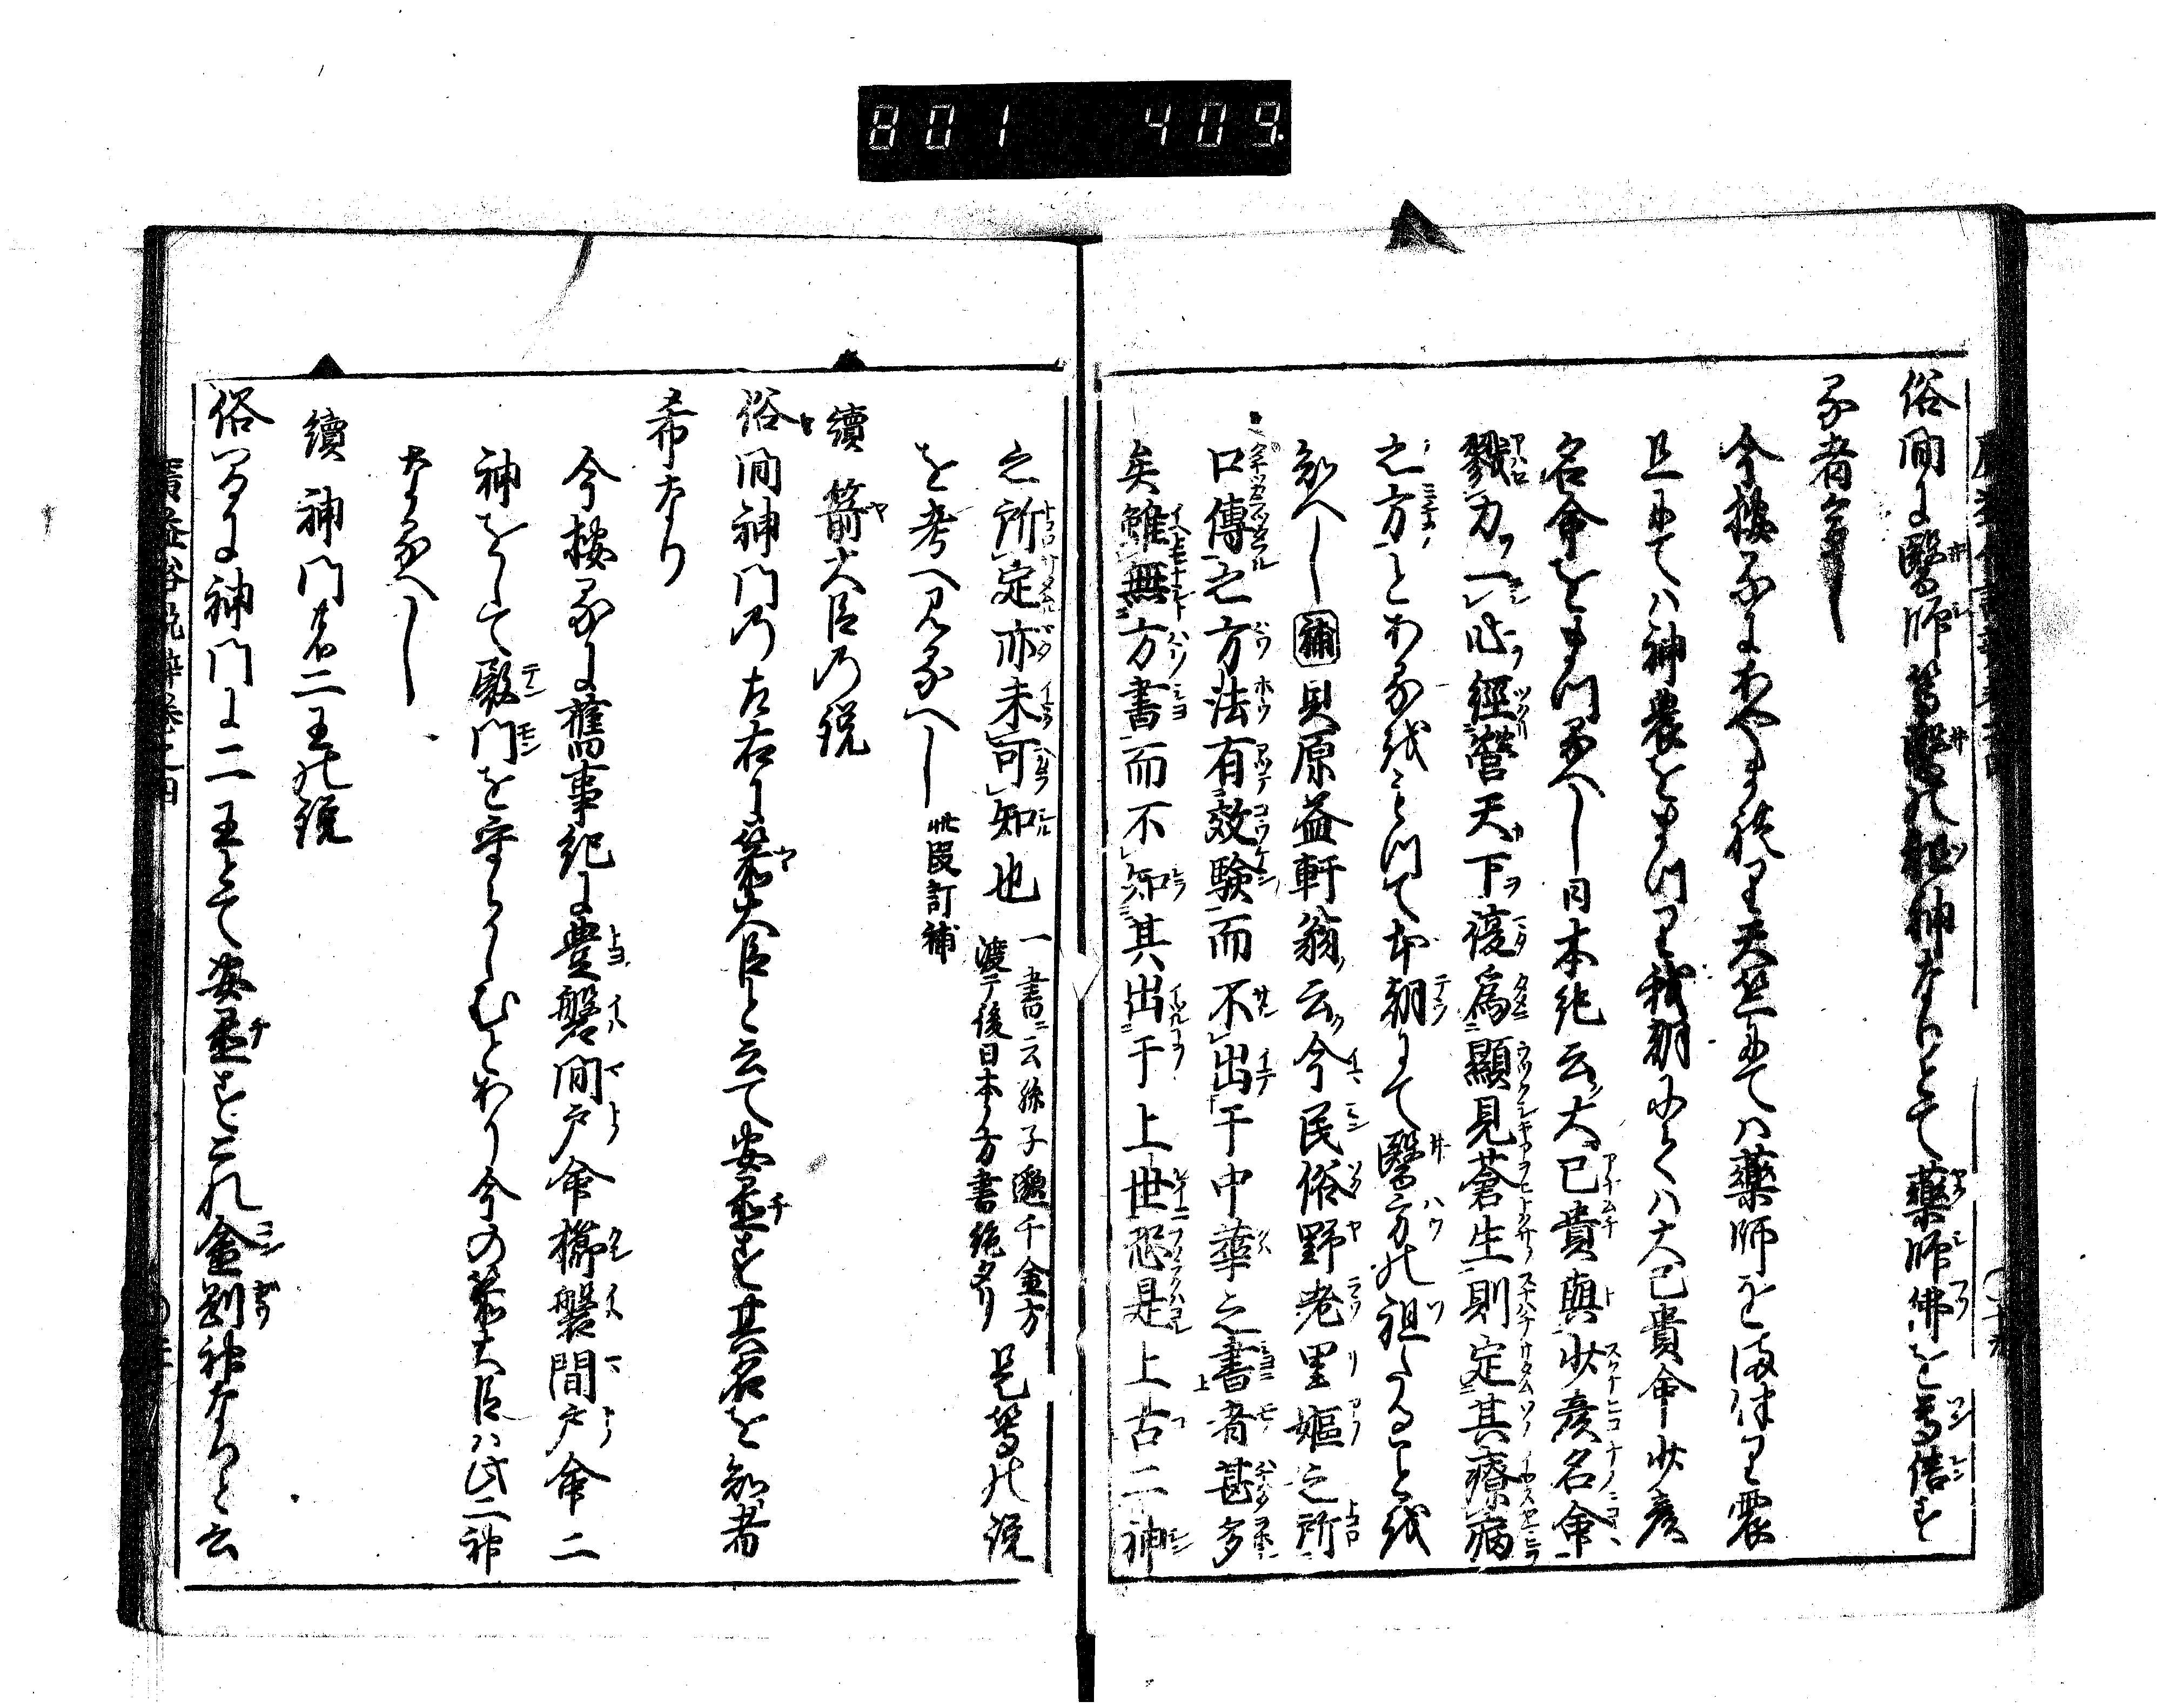 801 409
俗間に醫師等醫の祖神なりとて藥師佛を尊信す
る者多し
今按るにあやまり也天竺にては藥師をまつり震
旦にては神農をまつり我朝にては大己貴命少彦
名命をまつるへし日本紀云大己貴與少彦名命
戮力一心經營天下復爲顯見蒼生則定其療病
之方とある是を以て本朝にて醫方の祖たること
知へし補貝原益軒翁云今民俗野老里嫗之所
口傳之方法有效驗而不出于中華之書者甚多
矣雖無方書而不知其出于上世恐是上古二神
之所定亦未可知也一書云孫子邈千金方
渡テ後日本ノ方書絶タリ是等の説
を考へ見るへし此段訂補
續箭大臣の説
俗間神門の左右に箭大臣と云て安置す其名を知者
希なり
今按るに舊事紀に豊磐間戸命櫛磐間戸命二
神をして殿門を守らしむとあり今の箭大臣ハ此二神
なるへし
續神門有二王の説
俗間に神門に二王とて安置すこれ金剛神ならと云
廣益俗説辨卷之四